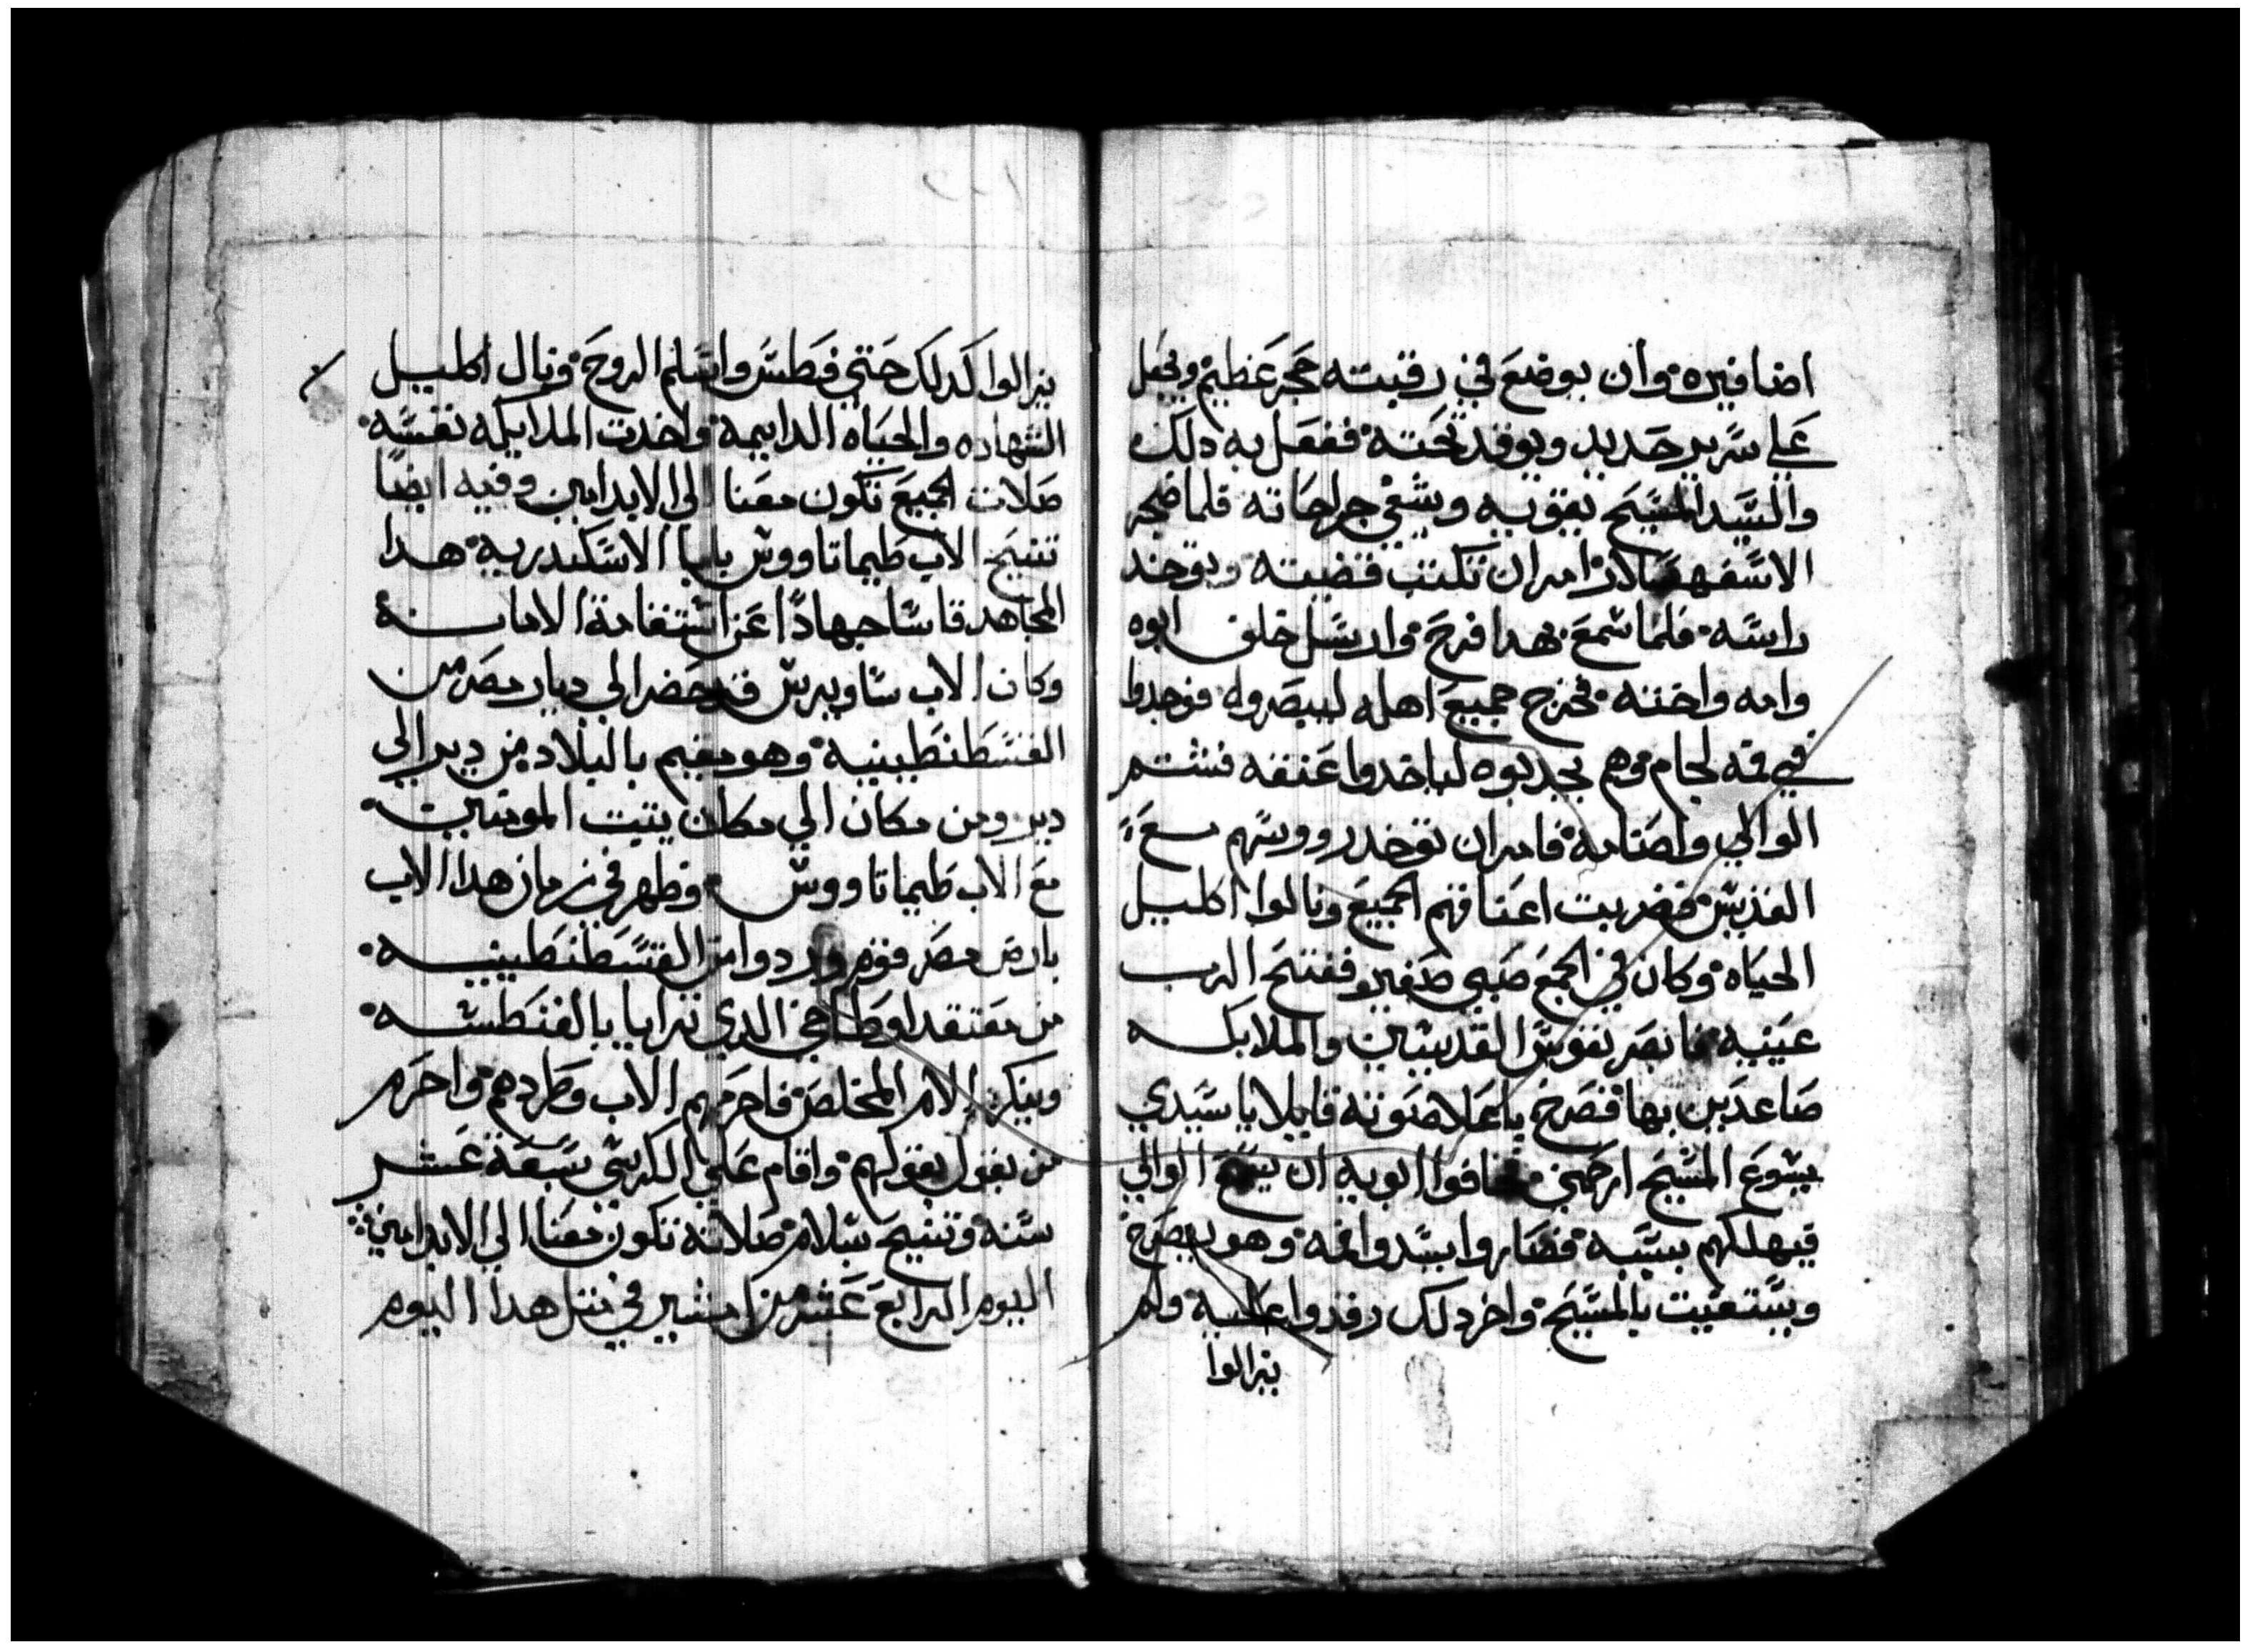 اضافيره وان يوضع في رقبته حجر عظيم ويجعل
علي سرير حديد ويوقد تحته ففعل به دلك
والسيد المسيح يقويه ويشفي جراحاته فلما ضجر
الاسفهسلار امر ان تكتب قضيته ويوخد
راسه فلما سمع بهدا فرح وارسل خلف ابوه
وامه واخته فخرج جميع اهله ليبصروه فوجدوا
في فمه لجام وهم يجدبوه لياخدوا عنقه فشتم
الوالي واصنامه فامر ان توخد رووسهم مع
القديس فضربت اعناقهم الجميع ونالوا اكليل
الحياه وكان في الجمع صبي صغير ففتح الرب
عينيه فابصر نفوس القديسين والملايكه
صاعدين بها فصرخ باعلا صوته قايلا يا سيدي
يسوع المسيح ارحمني فخافوا ابويه ان يسمع الوالي
فيهلكهم بسببه فصاروا يسدوا فمه وهو يصرخ
ويستغيت بالمسيح واخر دلك رفدوا عليه ولم
يزالوا
يزالوا كدلك حتي فطس واسلم الروح ونال اكليل
الشهاده والحياه الدايمه واخدت الملايكه نفسه
صلات الجميع تكون معنا الي الابد امين وفيه ايضا
تنيح الاب طيماتاووس بابا الاسكندريه هدا
المجاهد قاسا جهادا عن استقامة الامانه
وكان الاب ساويرس قد حضر الي ديار مصر من
القسطنطينيه وهو مقيم بالبلاد من دير الي
دير ومن مكان الي مكان يتبت المومنين
مع الاب طيماتاووس وظهر في زمان هدا الاب
بارض مصر قوم وردوا من القسطنطينيه
من معتقد اوطاخي الدي ترايا بالفنطسه
وينكر الام المخلص فاحرمهم الاب وطردهم واحرم
من يقول بقولهم واقام علي الكرسي سبعة عشر
سنه وتنيح بسلام صلاته تكون معنا الي الابد امين
اليوم الرابع عشر من امشير في متل هدا اليوم